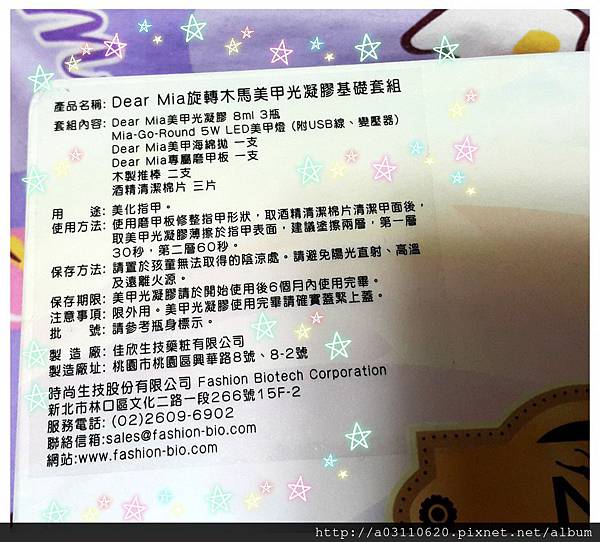 產品名稱: Dear Mia旋轉木馬美甲光凝膠基礎套組
套組內容: Dear Mia美甲光凝膠 8ml 3瓶
Mia-Go-Round 5W LED美甲燈 (附USB線、變壓器)
Dear Mia美甲海綿拋 一支
Dear Mia專屬磨甲板 一支
木製推棒 二支
酒精清潔棉片 三片
用 途: 美化指甲。
使用方法: 使用磨甲板修整指甲形狀，取酒精清潔棉片清潔甲面後，
取美甲光凝膠薄擦於指甲表面，建議塗擦兩層，第一層
30秒，第二層60秒。
保存方法: 請置於孩童無法取得的陰涼處。請避免陽光直射、高溫
及遠離火源。
保存期限: 美甲光凝膠請於開始使用後6個月內使用完畢。
注意事項: 限外用。美甲光凝膠使用完畢請確實蓋緊上蓋。
批 號: 請參考瓶身標示。
製 造 廠: 佳欣生技藥粧有限公司
製造廠址: 桃園市桃園區興華路8號、8-2號
時尚生技股份有限公司 Fashion Biotech Corporation
新北市林口區文化二路一段266號15F-2
服務電話: (02)2609-6902
聯絡信箱:sales@fashion-bio.com
網站:www.fashion-bio.com
http://a03110620.pixnet.net/album